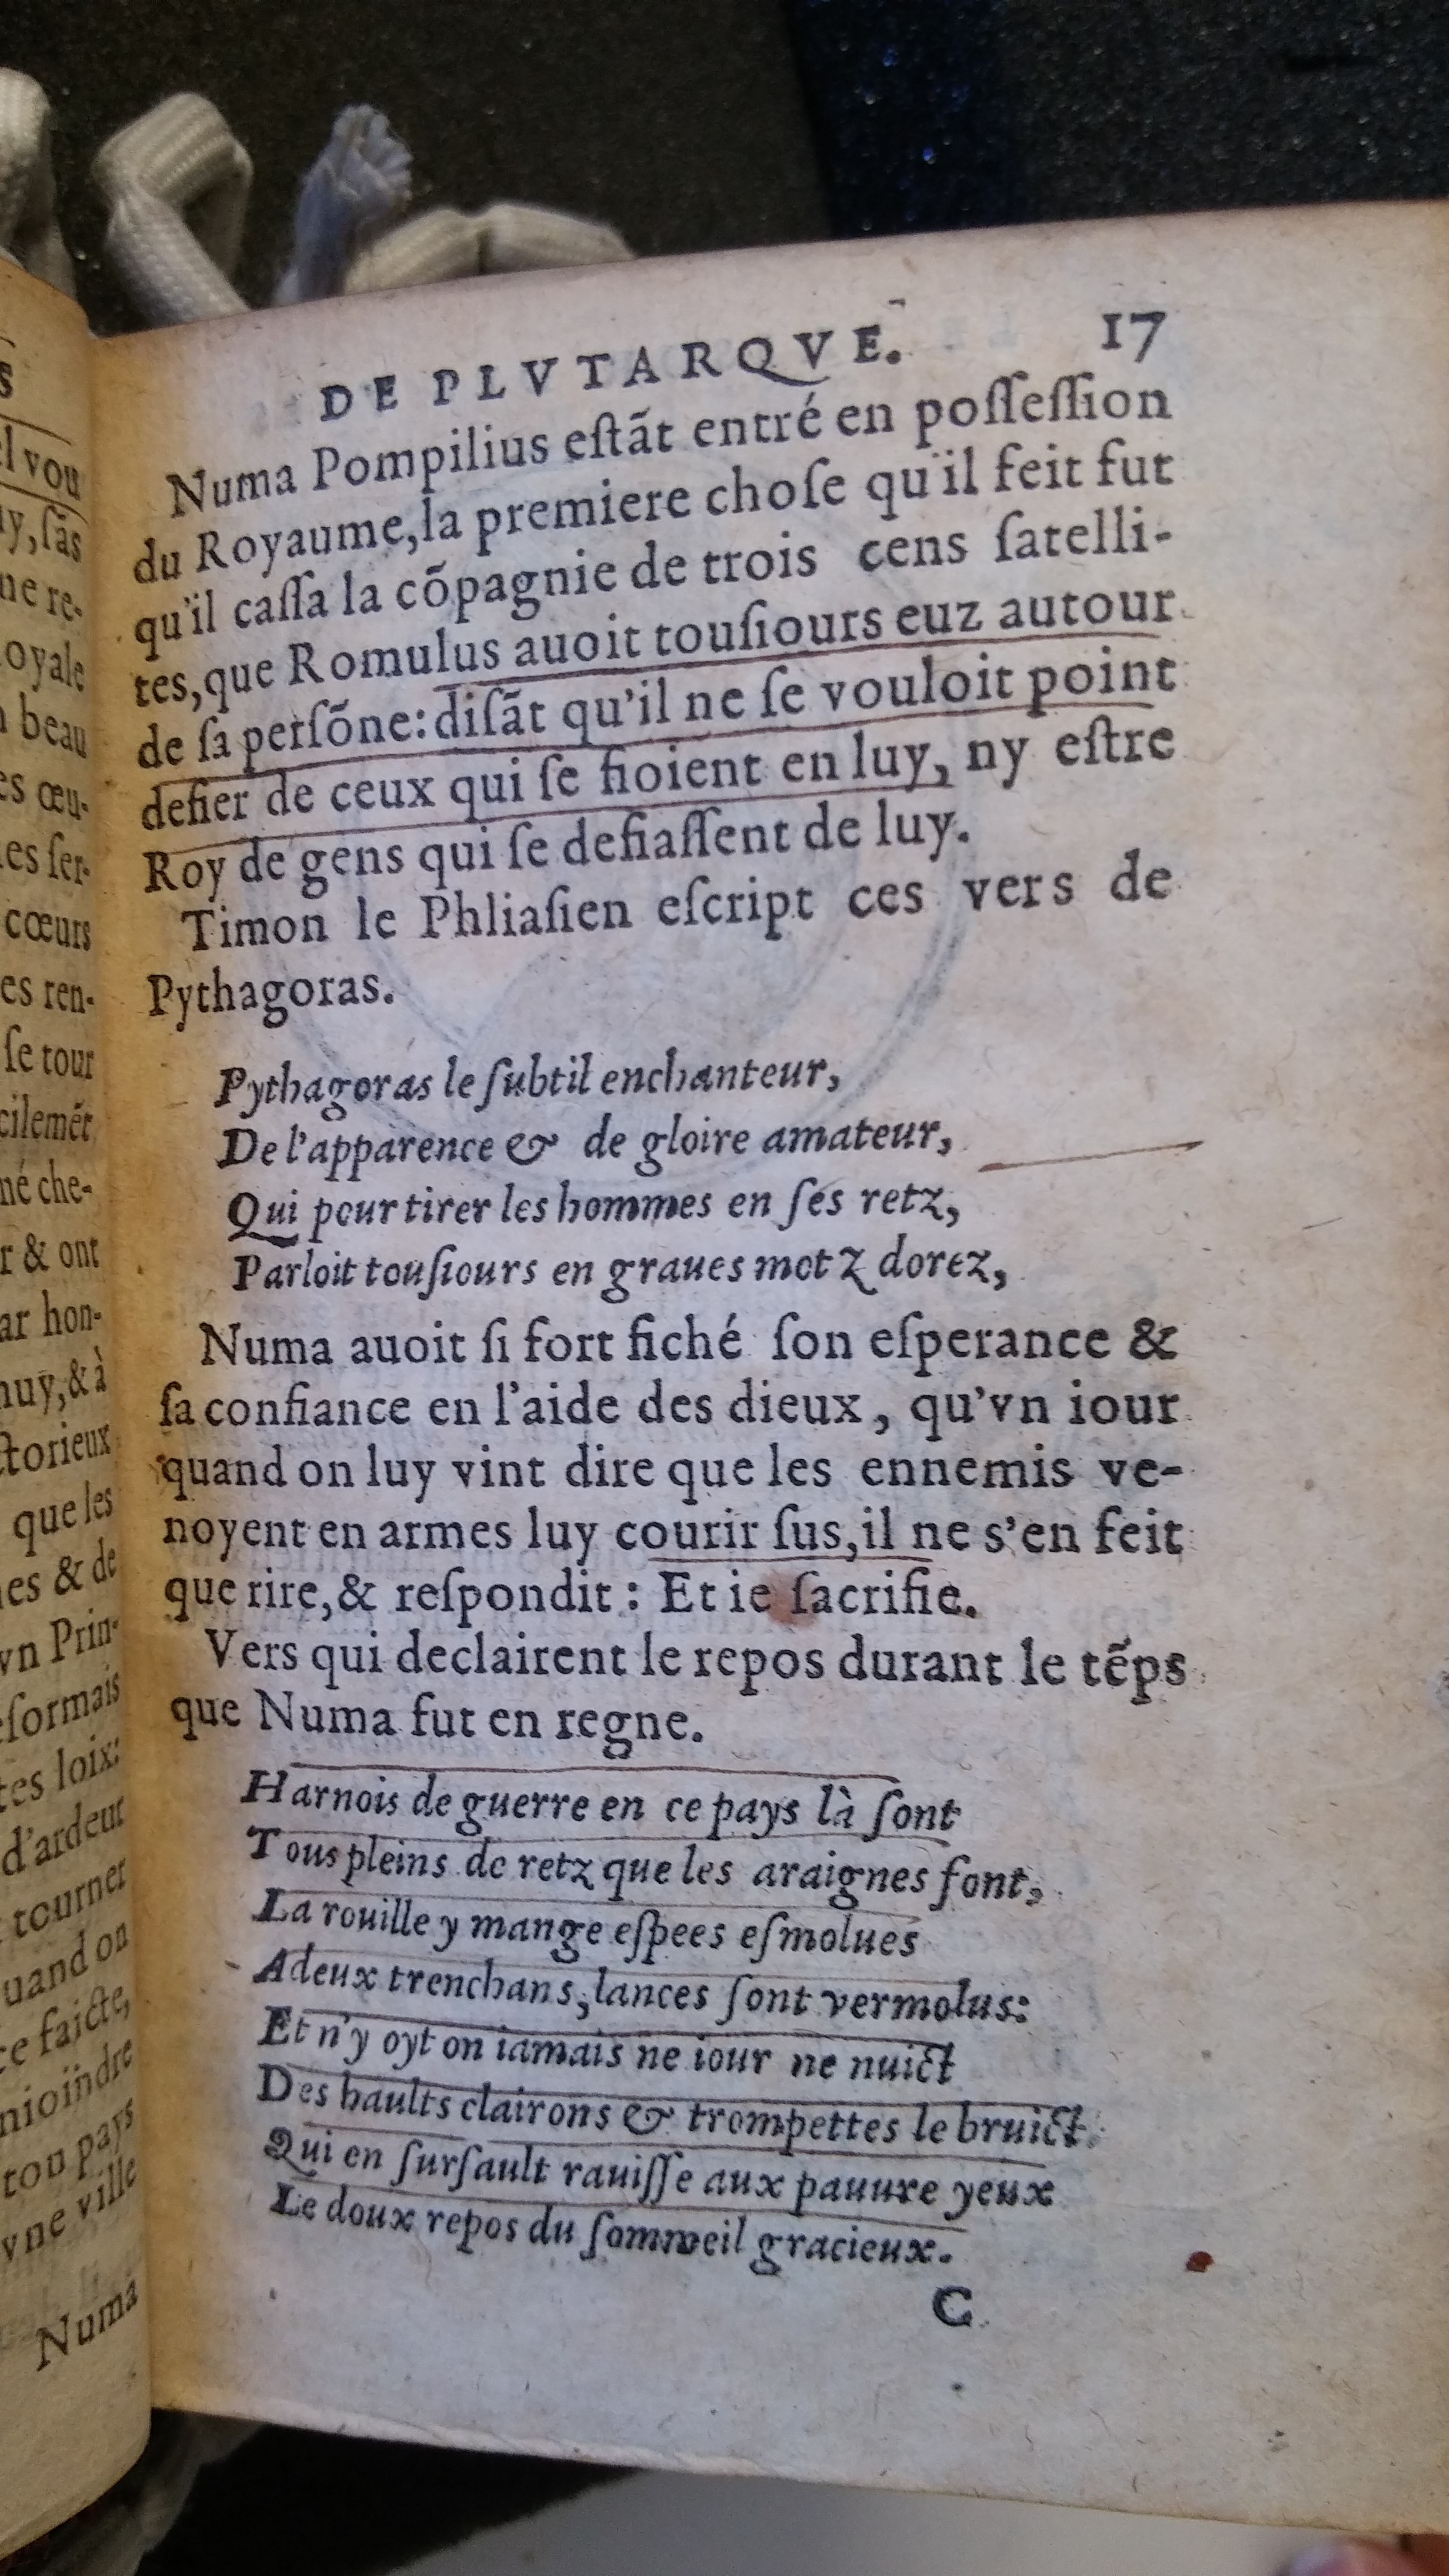 DE PLVTARQVE. 17
Numa Pompilius eſtãt entré en poſſeſſion
du Royaume, la premiere choſe qu'il feit fut
qu'il caſſa la cõpagnie de trois cens ſatelli-
tes, que Romulus auoit touſiours euz autour
de ſa perſõne: diſãt qu'il ne ſe vouloit point
defier de ceux qui ſe fioient en luy, ny eſtre
Roy de gens qui ſe defiaſſent de luy.
Timon le Phliaſien eſcript ces vers de
Pythagoras.
Pythagoras le ſubtil enchanteur,
De l'apparence & de gloire amateur,
Qui pour tirer les hommes en ſes retz,
Parloit touſiours en graues motz dorez,
Numa auoit ſi fort fiché ſon eſperance &
ſa confiance en l'aide des dieux, qu'vn iour
quand on luy vint dire que les ennemis ve-
noyent en armes luy courir ſus, il ne s'en feit
que rire, & reſpondit : Et ie ſacrifie.
Vers qui declairent le repos durant le tẽps
que Numa fut en regne.
Harnois de guerre en ce pays là ſont
Tous pleins de retz que les araignes font,
La rouille y mange eſpees eſmolues
A deux trenchans, lances ſont vermolus:
Et n'y oyt on iamais ne iour ne nuict
Des haults clairons & trompettes le bruict.
Qui en ſurſault rauiſſe aux pauure yeux
Le doux repos du ſommeil gracieux.
C
vou
ſãs
re-
beau
cœurs
ren-
ſe tour
& ont
hon-
& à
que les
& de
vn Prin-
loix:
d'ardeur
tourner
faicte,
ton pays
vne ville
Numa